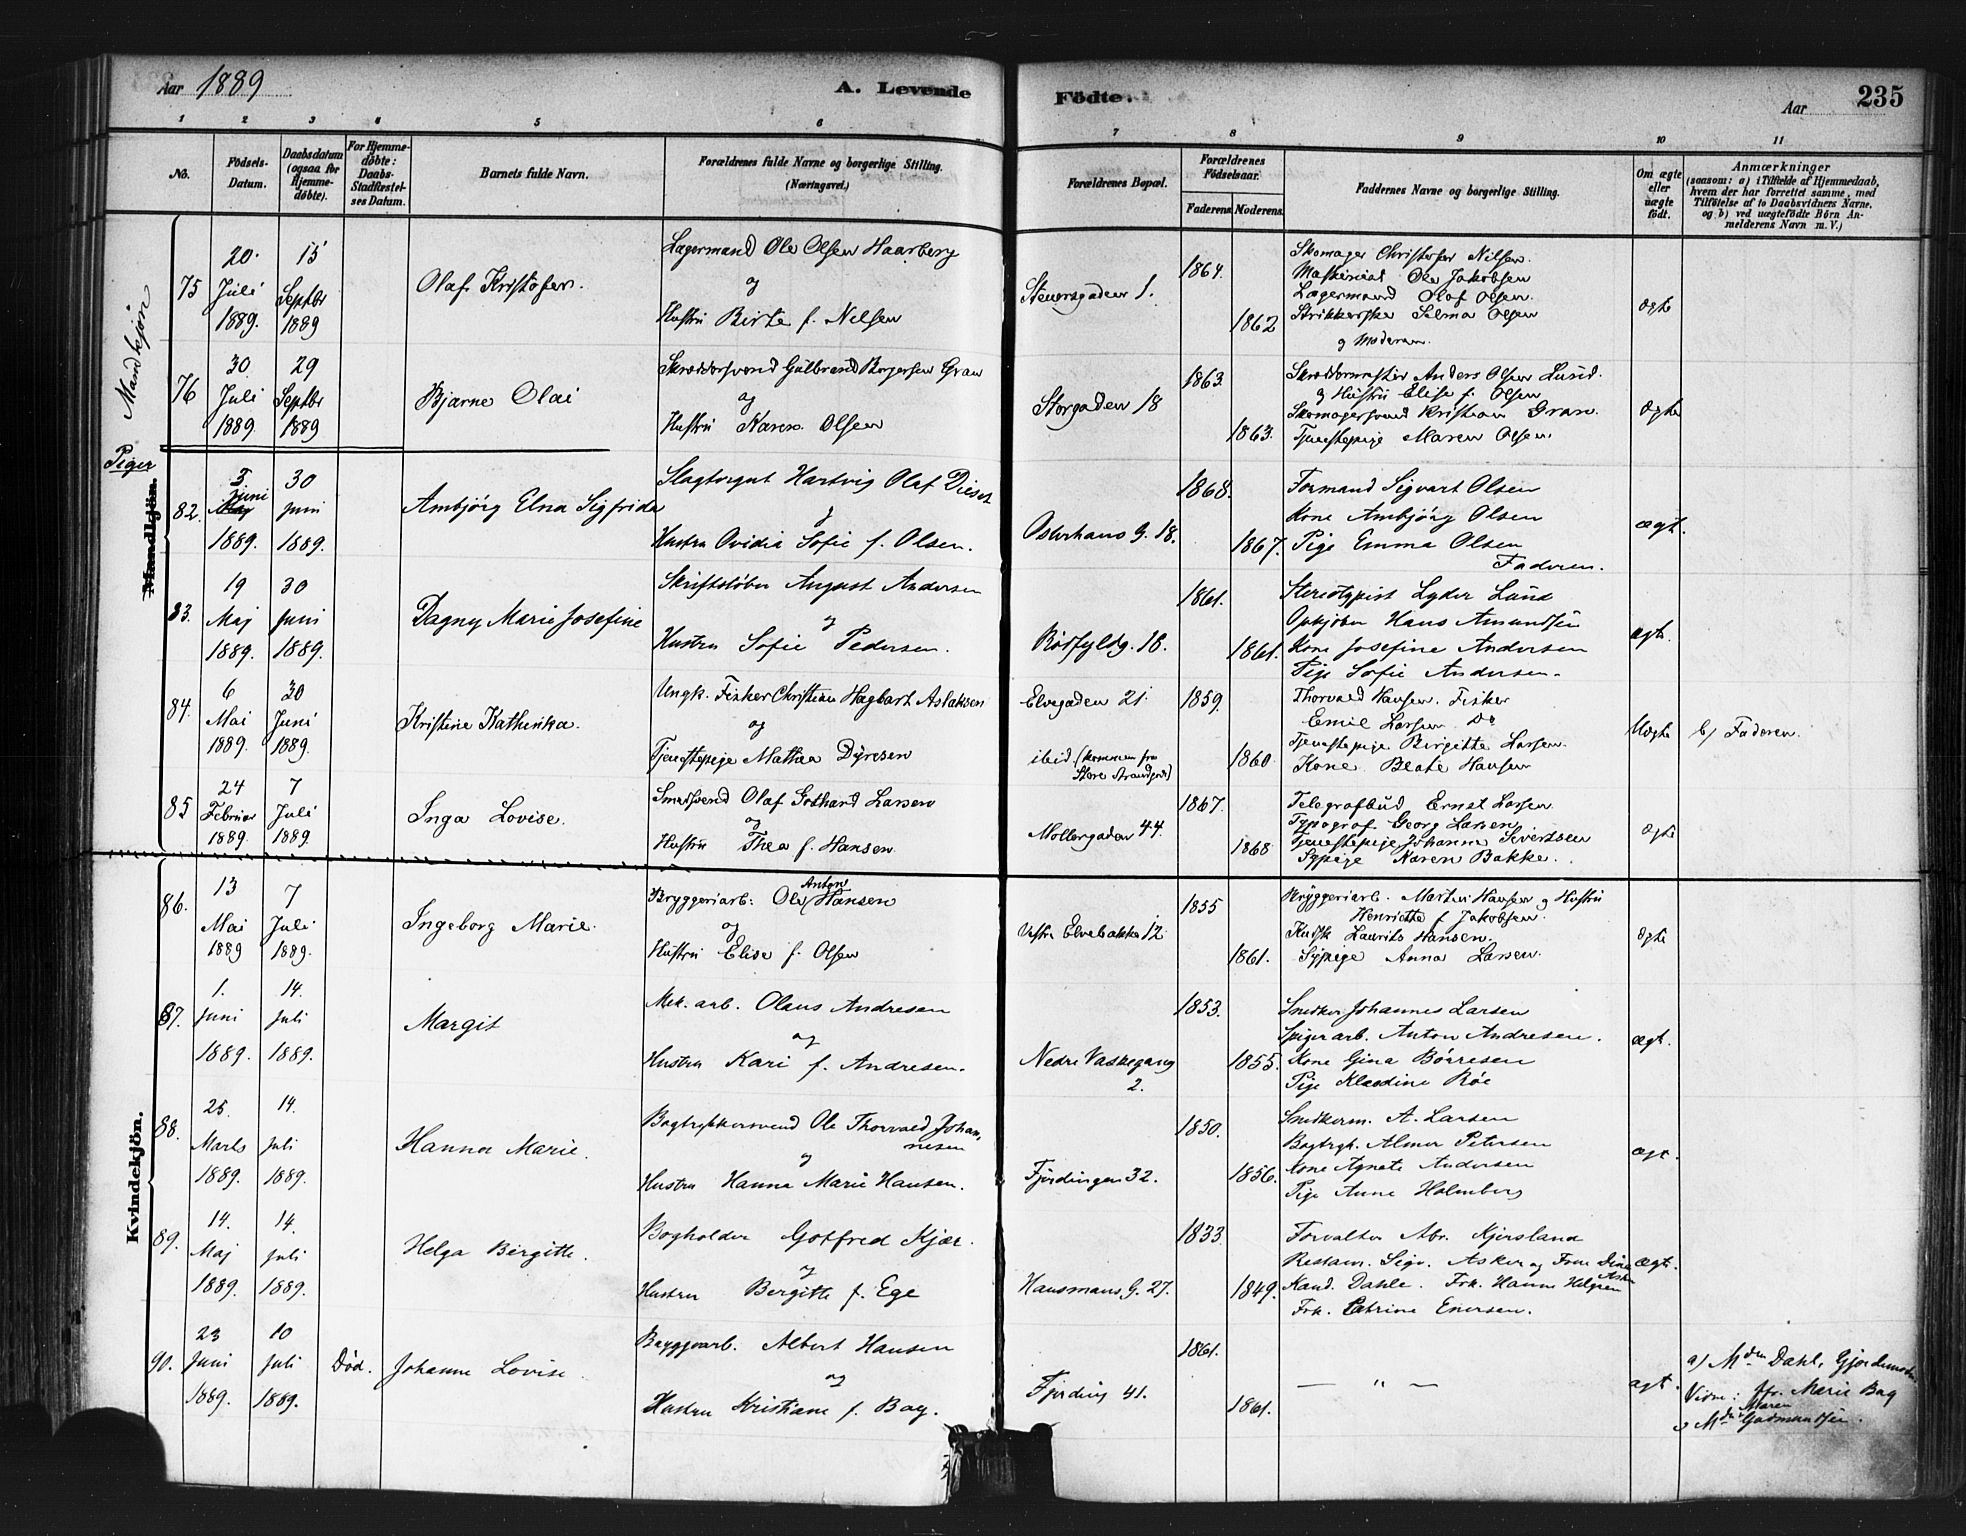 Aar 1889
A. Levende
Födte.
Aar
235
1 2 3 4 5 6 7 8 9 10 11
No.
Födsels-
Datum.
Daabsdatum
(ogsaa for
Hjemme-
döbte).
For Hjemme-
döbte:
Daabs-
Stadfæstel-
ses Datum.
Barnets fulde Navn.
Forældrenes fulde Navne og borgerlige Stilling.
(Næringsvei.)
Forældrenes Bopæl.
Forældrenes
Födselsaar.
Faderens. Moderens.
Faddernes Navne og borgerlige Stilling.
Om ægte
eller
uægte
födt.
Anmærkninger
(saasom: a) i Tilfælde af Hjemmedaab,
hvem der har forrettet samme, med
Tilföielse af to Daabsvidners Navne,
og b) ved uægtefödte Börn An-
melderens Navn m. V.)
Mandkjön
75
20.
Juli
1889.
15
Septbr
1889
Olaf Kristofer.
Lagermand Ole Olsen Haarberg
og
Hustru Birte f. Nelsen
Steuersgaden 1.
1864.
1862
Skomager Christofer Nilsen.
Maskinist Ole Jakobsen
Lagermand Olaf Olsen.
Strikkerske Selma Olsen
og Moderen.
ægte
76
30.
Juli
1889.
29
Septbr
1889
Bjarne Olai
Skræddersvend Gulbrand Borgersen Gran
og
Hustru Karen Olsen
Storgaden 18
1863.
1863.
Skræddermester Anders Olsen Lund.
og Hustru Elise f. Olsen
Skomagersvend Kristian Gran.
Tjenestepige Maren Olsen.
Ægte
Piger
Mandkjön.
82.
3
Juni
Maj
1889.
30
Juni
1889.
Ambjörg Elna Sigfrida
Slagtergut Hartvig Olaf Dieset
og
Hustru Ovidia Sofie f. Olsen.
Osterhaus G. 18.
1868.
1867.
Formand Sigvart Olsen
Kone Ambjörg Olsen
Pige Emma Olsen
Faderen.
ægt.
83.
19
Maj
1889.
30
Juni
1889.
Dagny Marie Josefine
Skriftstöber August Andersen
og
Hustru Sofie Pedersen.
Rödfyldg. 18.
1861.
1861.
Stereotypist Lyder Lund
Opkjöber Hans Amundsen
Kone Josefine Andersen
Pige Sofie Andersen.
ægt.
84.
6
Mai
1889.
30
Juni
1889.
Kristine Kathinka.
Ungk. Fisker Christian Hagbart Aslaksen
og
Tjenestepige Mathea Dyresen
Elvegaden 21.
ibid (kommen fra
Store Strandgade)
1859.
1860
Thorvald Hansen. Fisker
Emil Larsen Do
Tjenestepige Birgitte Larsen.
Kone Beate Hansen
Uægte
b) Faderen.
85
24
Februar
1889.
7
Juli
1889.
Inga Lovise.
Smedsvend Olaf Gothard Larsen
og
Hustru Thea f. Hansen
Mollergaden 44.
1867.
1868
Telegrafbud Ernst Larsen.
Typograf Georg Larsen
Tjenestepige Johanne Sivertsen
Sypige Karen Bakke.
ægte
Kvindekjön.
86.
13
Mai
1889
7
Juli
1889.
Ingeborg Marie.
Anton
Bryggeriarb: Ole Hansen
og
Hustru Elise f. Olsen
Vestre Elvebakke 12
1855
1861.
Bryggeriarb. Martin Hansen og Hustru
Henriette f. Jakobsen.
Kudsk Laurits Hansen.
Sypige Anna Larsen.
ægte
87.
1.
Juni
1889.
14.
Juli
1889.
Margit
Mek. arb. Olaus Andresen
og
Hustru Kari f. Andresen.
Nedre Vaskegang
2.
1853.
1855.
Snedker Johannes Larsen
Spigerarb. Anton Andresen.
Kone Gina Börresen
Pige Klaudine Röe
ægt.
88.
25.
Marts
1889.
14.
Juli
1889.
Hanna Marie.
Bogtrykkersvend Ole Thorvald Johan-
nesen
og
Hustru Hanna Marie Hansen.
Fjerdingen 32.
1850.
1856.
Snedkerm. A. Larsen
Bogtryk. Almer Petersen
Kone Agnete Andersen
Pige Anne Holmberg
ægt.
89.
14.
Maj
1889.
14.
Juli
1889.
Helga Birgitte.
Bogholder Gotfred Kjær.
og
Hustru Bergitte f. Ege
Hausmans G. 27.
1833.
1849.
Forvalter Abr. Kjersland
Restaur. Sigv. Asker og Frue Dina
Asker
Kand. Dahle. Frk. Hanne Helgesen
Frk. Catrine Enersen.
ægt.
90.
23
Juni
1889.
10
Juli
1889.
Död.
Johanne Lovise
Byggearb. Albert Hansen
og
Hustru Kristiane f. Bog.
Fjerding 41.
1861.
1861.
— " —
ægt.
a) Mdm Dahl, Gjordemoder.
Vidne: Marie Bog
Maren
og Mdm Gudmundsen.